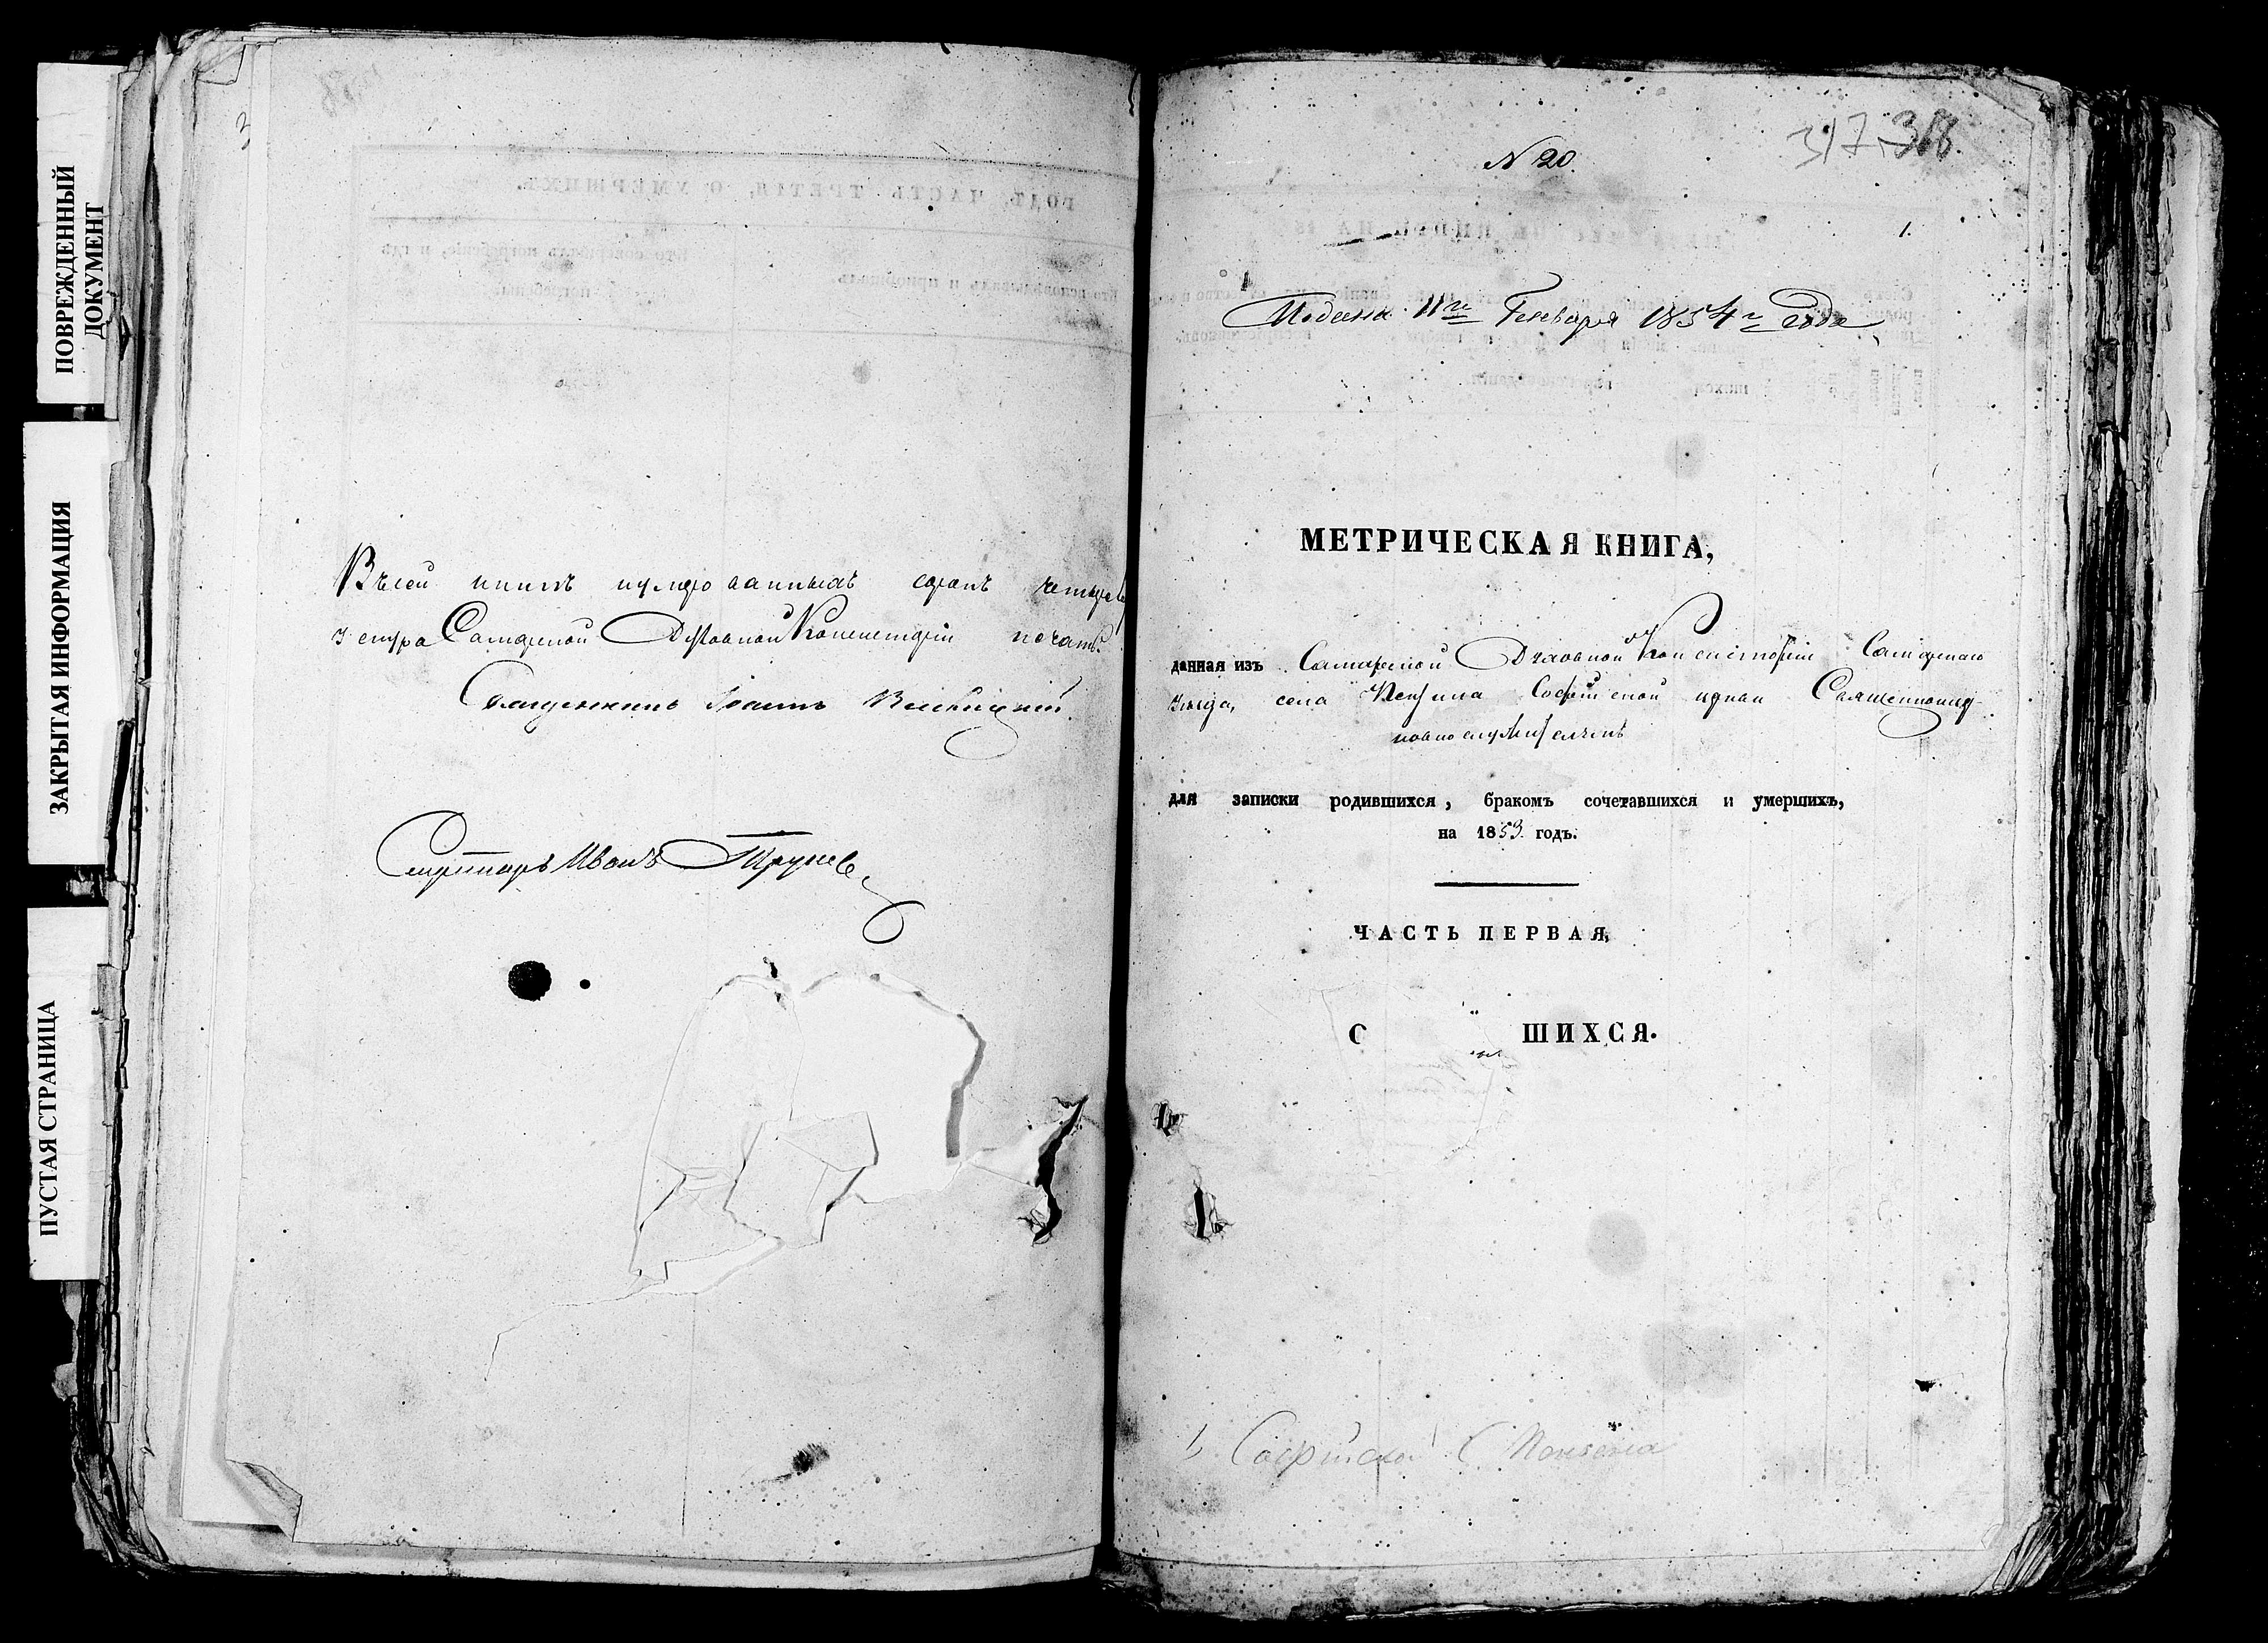 ПОВРЕЖДЕННЫЙ
ДОКУМЕНТ
ЗАКРЫТАЯ ИНФОРМАЦИЯ
ПУСТАЯ СТРАНИЦА
Въ сей книгѣ нумерованныхъ
у снура Самарской Духовной Консисторіи печать.
Священникъ Іоаннъ
Секретарь Иванъ
N 20.
317-318
1.
Подана 11го Генваря 1854го года
МЕТРИЧЕСКАЯ КНИГА,
данная изъ Самарской Духовной Консисторіи Самарскаго
уѣзда, села Софійской церкви Священноцер-
ковнослужителямъ
для записки родившихся, бракомъ сочетавшихся и умершихъ,
на 1853 годъ.
ЧАСТЬ ПЕРВАЯ,
О ШИХСЯ.